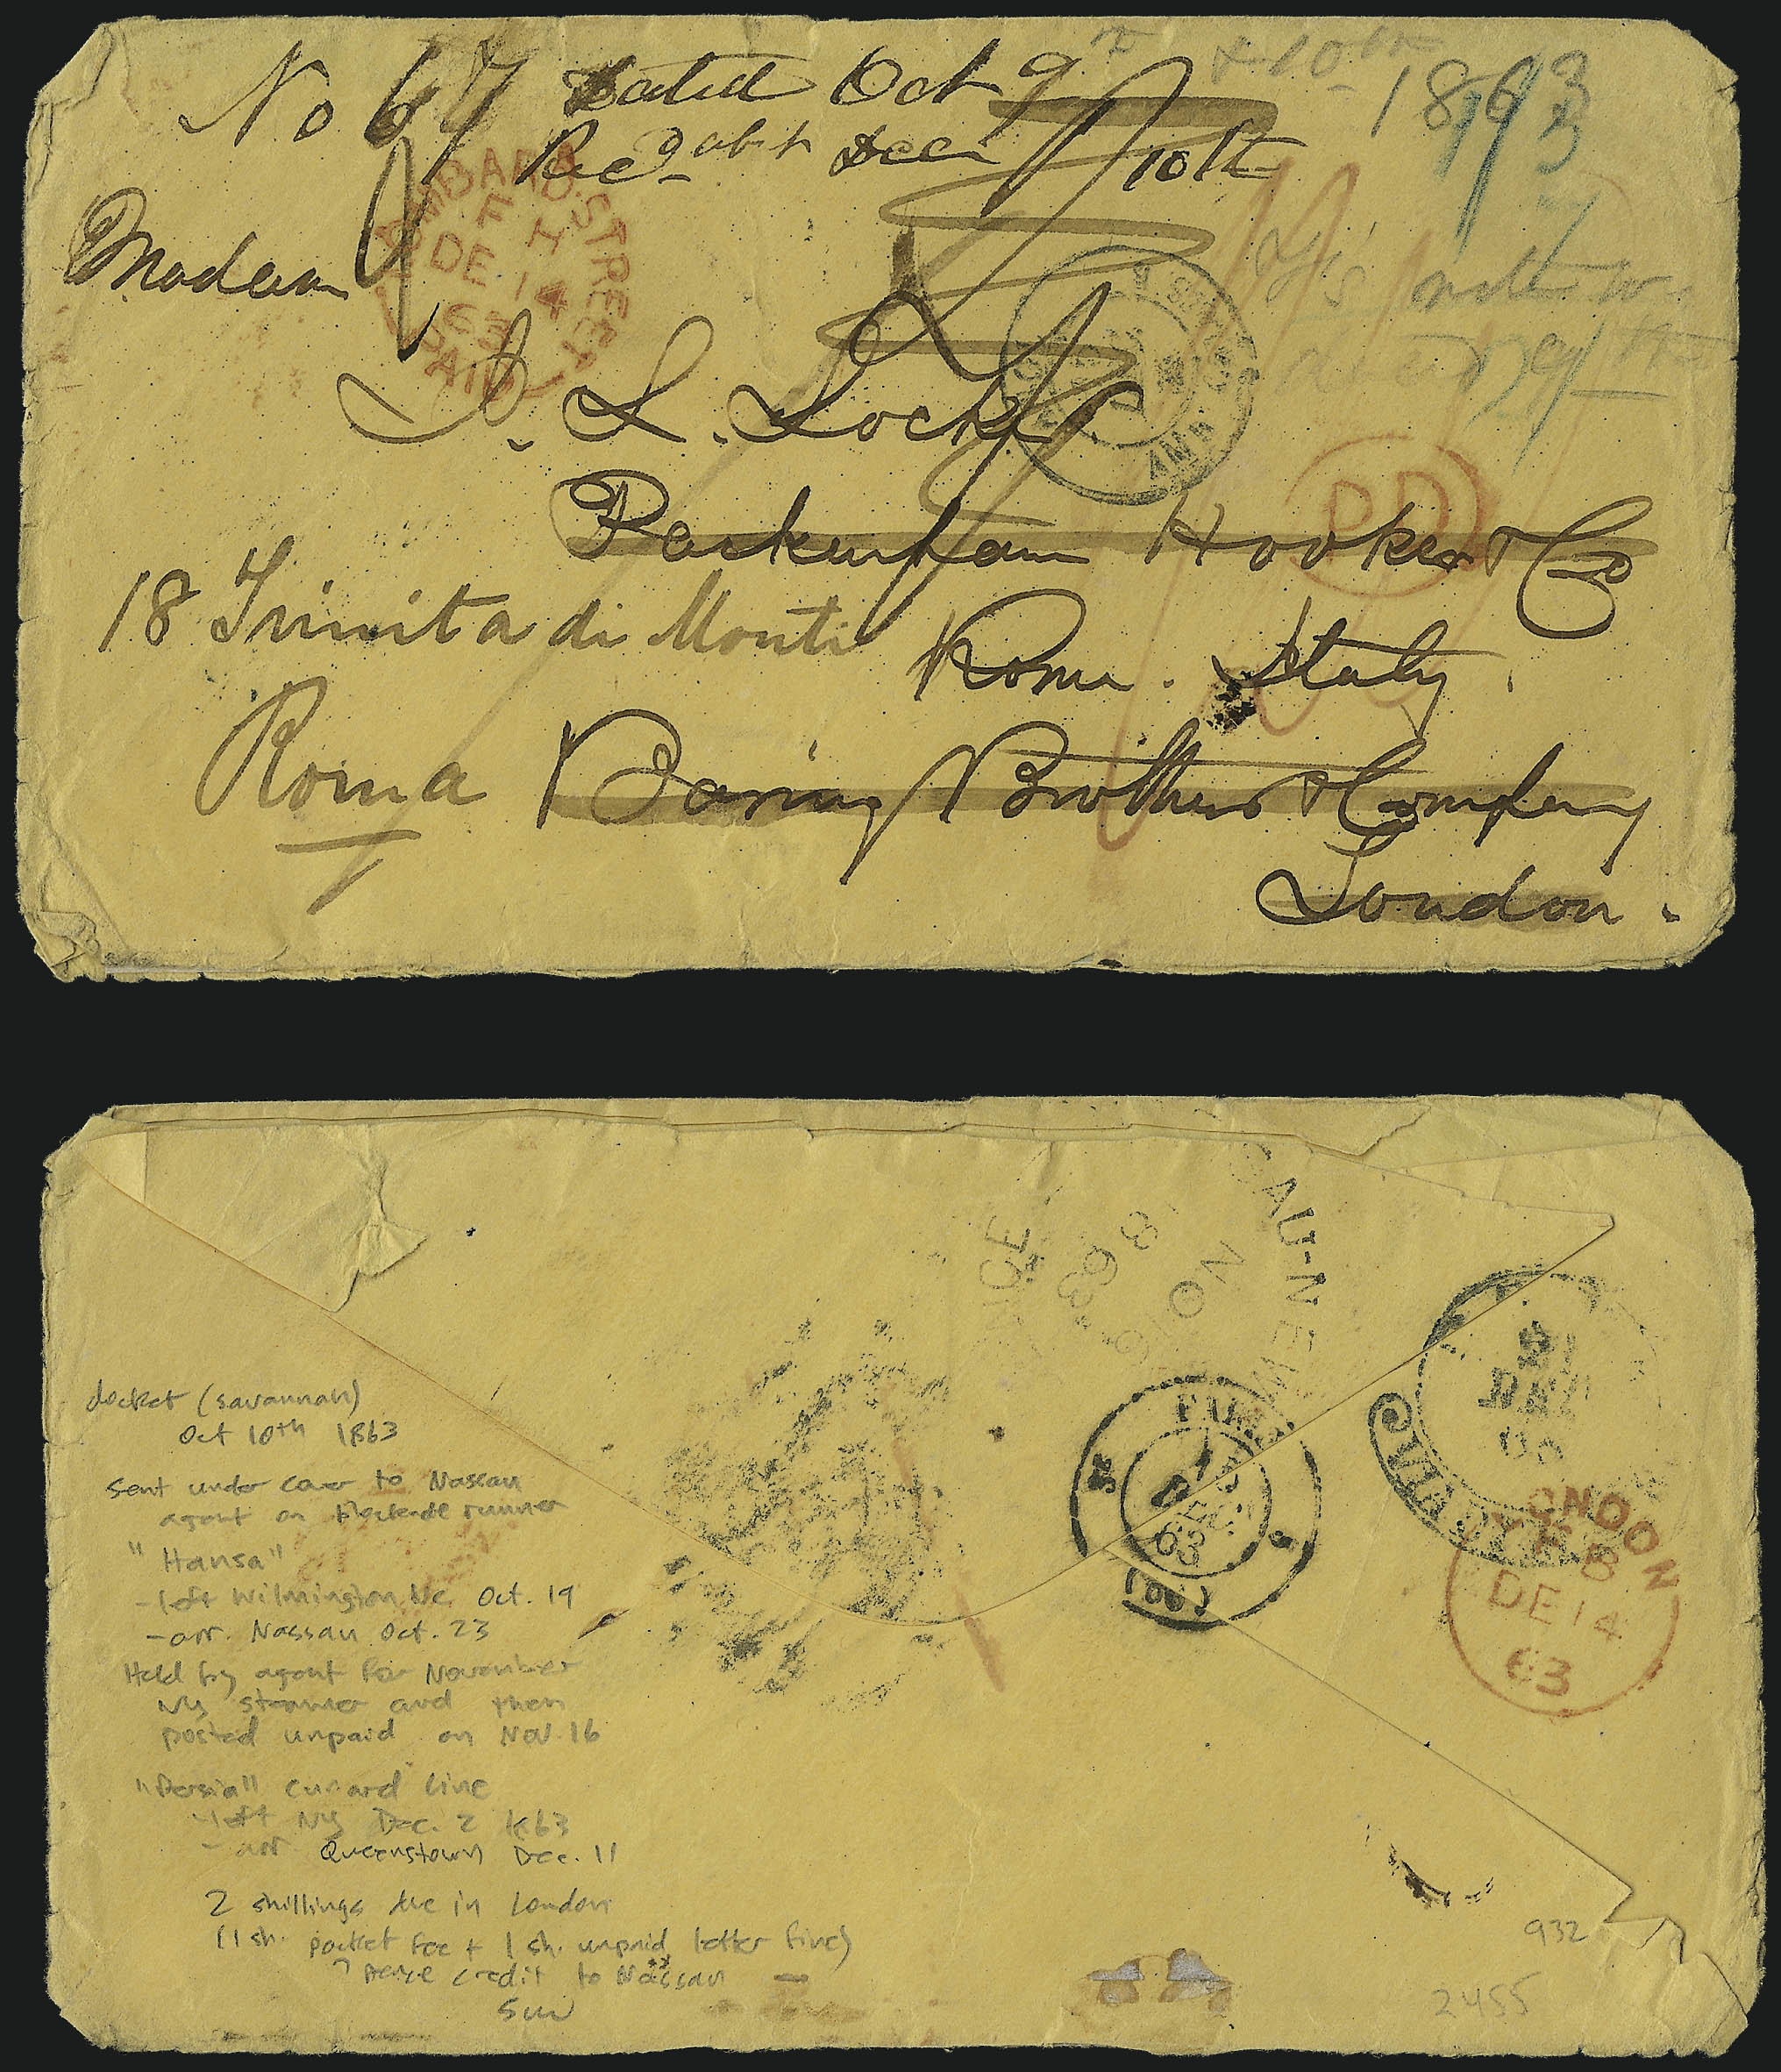 No 67 Dated Oct 9th & 10th 1863
Recd abt Decr 10th
LOMBARD STREET
F H
DE 14
63
PAID
Madam
A. L. Locke
PD
Packenham Hooker & Co
18 Trinita di Monti
Rome. Italy.
Roma
Baring Brothers & Company
London.
BAU-NEW
NO
63
docket (savannah)
Oct 10th 1863
sent under cover to Nassau
agent on blockade runner
"Hansa"
- left Wilmington Nc. Oct. 19
- arr. Nassau Oct. 23
Held by agent for November
NY steamer and then
posted unpaid on Nov. 16
"Persia" cunard line
- left NY Dec. 2 1863
- arr Queenstown Dec. 11
2 shillings due in London
(1 sh. packet fee + 1 sh. unpaid letter fine)
pence credit to Nassau
DEC
63
(60)
21
LONDON
DE 14
63
932
2455